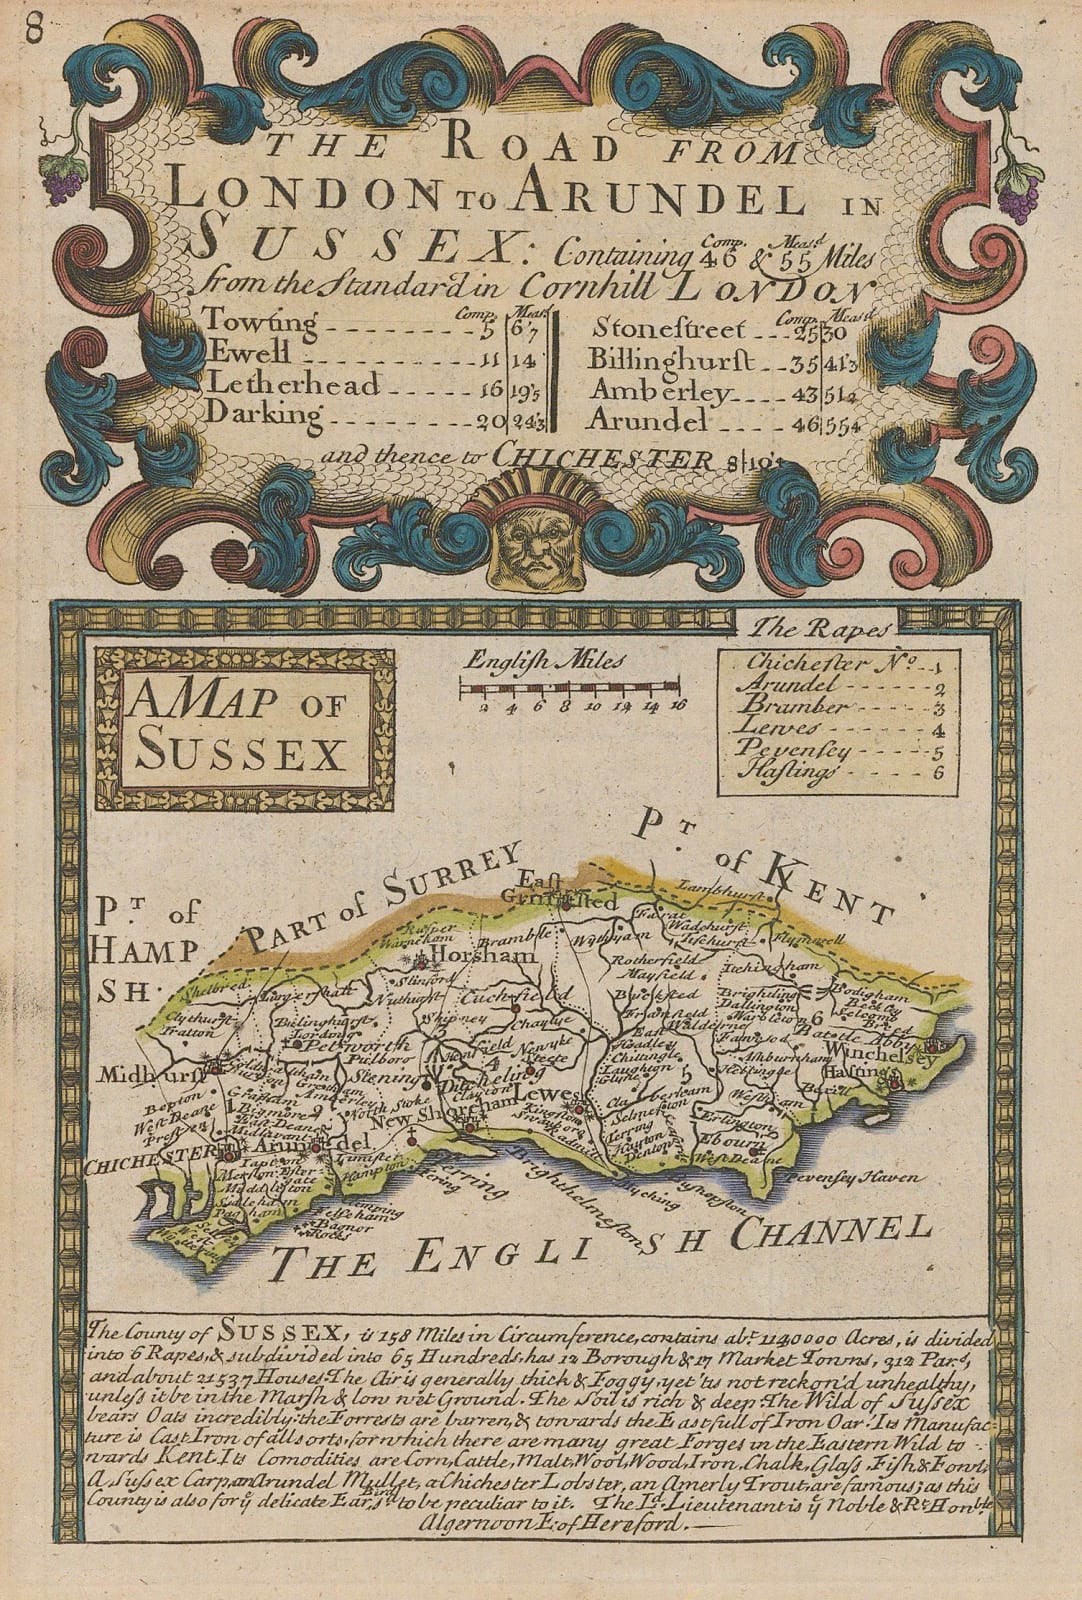 8
THE ROAD FROM
LONDON TO ARUNDEL IN
SUSSEX: Containing Comp. 46 & Meas.d 55 Miles
from the Standard in Cornhill LONDON
Comp. Meas.d
Towting 5 6'7
Ewell 11 14
Letherhead 16 19'5
Darking 20 24'3
Comp. Meas.d
Stoneſtreet 25 30
Billinghurſt 35 41'3
Amberley 43 51'2
Arundel 46 55'4
and thence to CHICHESTER 8 10'4
The Rapes
Chicheſter No. 1
Arundel 2
Bramber 3
Lewes 4
Pevenſey 5
Haſtings 6
English Miles
2 4 6 8 10 12 14 16
A MAP OF
SUSSEX
P.T of KENT
PART of SURREY
P.T of
HAMP
SH.
Eaſt
Grinſted
Lamberhurſt
Wadehurſt
Ticehurſt
Flymwell
Ruſper
Warneham
Horsham
Bramble
Wythyam
Rotherfield
Mayfield
Itchingham
Bodigham
Shelbred
Nuthurſt
Cuckfield
Buckſted
Brightling
Dallington
Clythurſt
Tratton
Bilinghurſt
Petworth
Pulboro
Shipney
Chaylye
Framfield
Walderne
Battle Abby
Winchelſey
Haſtings
Midhurſt
Stening
Henfield
Newyke
Chittingle
Laughton
Glyne
Aſhburnham
Hellingle
Bexill
Bepton
Weſt Deane
Graffham
Bigmore
Amberley
North Stoke
Ditcheling
Clayton
Lewes
New Shoreham
Selmeston
CHICHESTER
Arundel
Ebourn
Weſt Deane
Pevenſey Haven
Middleton
Sidleham
Pagham
Felſeham
Bagnor
Rocks
Brighthelmeston
THE ENGLISH CHANNEL
The County of SUSSEX, is 158 Miles in Circumference, contains abt. 1140000 Acres, is divided
into 6 Rapes, & subdivided into 65 Hundreds, has 12 Borough & 17 Market Towns, 312 Pars,
and about 21537 Houses. The Air is generally thick & Foggy, yet 'tis not reckon'd unhealthy,
unleſs it be in the Marſh & low wet Ground. The Soil is rich & deep. The Wild of Suſſex
bears Oats incredibly: the Forrests are barren, & towards the East full of Iron Oar. Its Manufac-
ture is Caſt Iron of all sorts, for which there are many great Forges in the Eastern Wild to-
wards Kent. Its Comodities are Corn, Cattle, Malt, Wool, Wood, Iron, Chalk, Glaſs, Fiſh & Fowl.
A Suſsex Carp, an Arundel Mullet, a Chicheſter Lobster, an Amerly Trout, are famous; as this
County is also for ye delicate Bird Ears, sd. to be peculiar to it. The Ld. Lieutenant is ye Noble & Rt. Honble
Algernoon E: of Hereford.